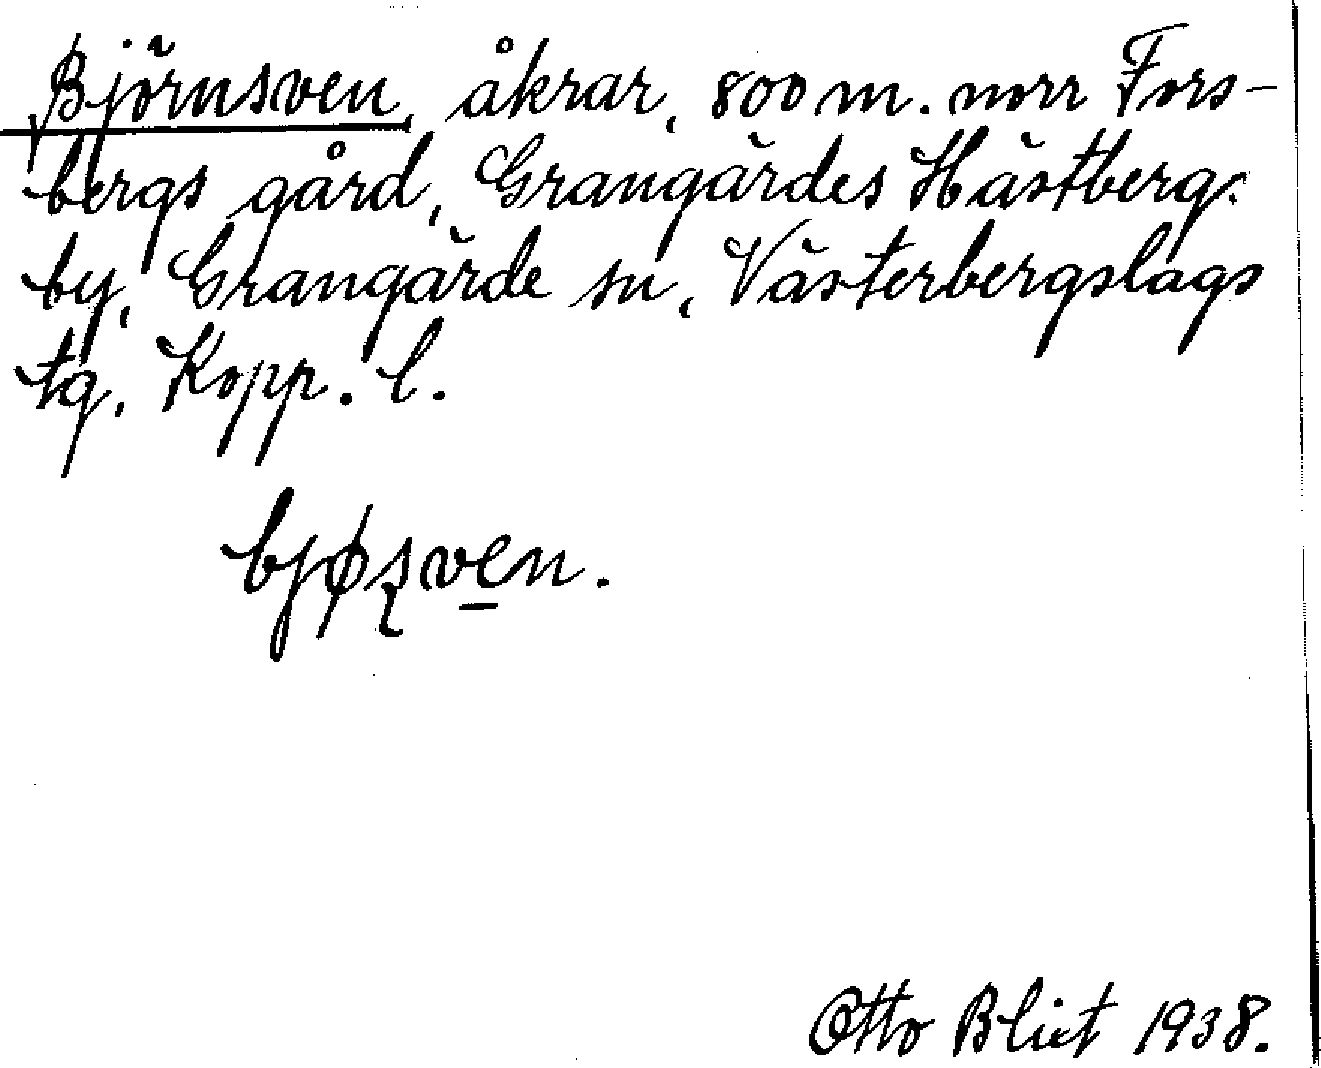 Björnsven, åkrar, 800 m. norr Fors-
bergs gård, Grangärdes Hästberg.
by, Grangärde sn, Västerbergslags
tg. Kopp. l.
bjøsven.
Otto Blixt 1938.